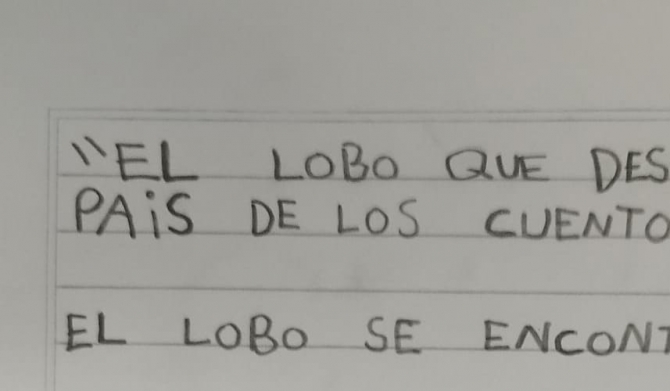 "EL LOBO QUE DES
PAiS DE LOS CUENTO
EL LOBO SE ENCONT